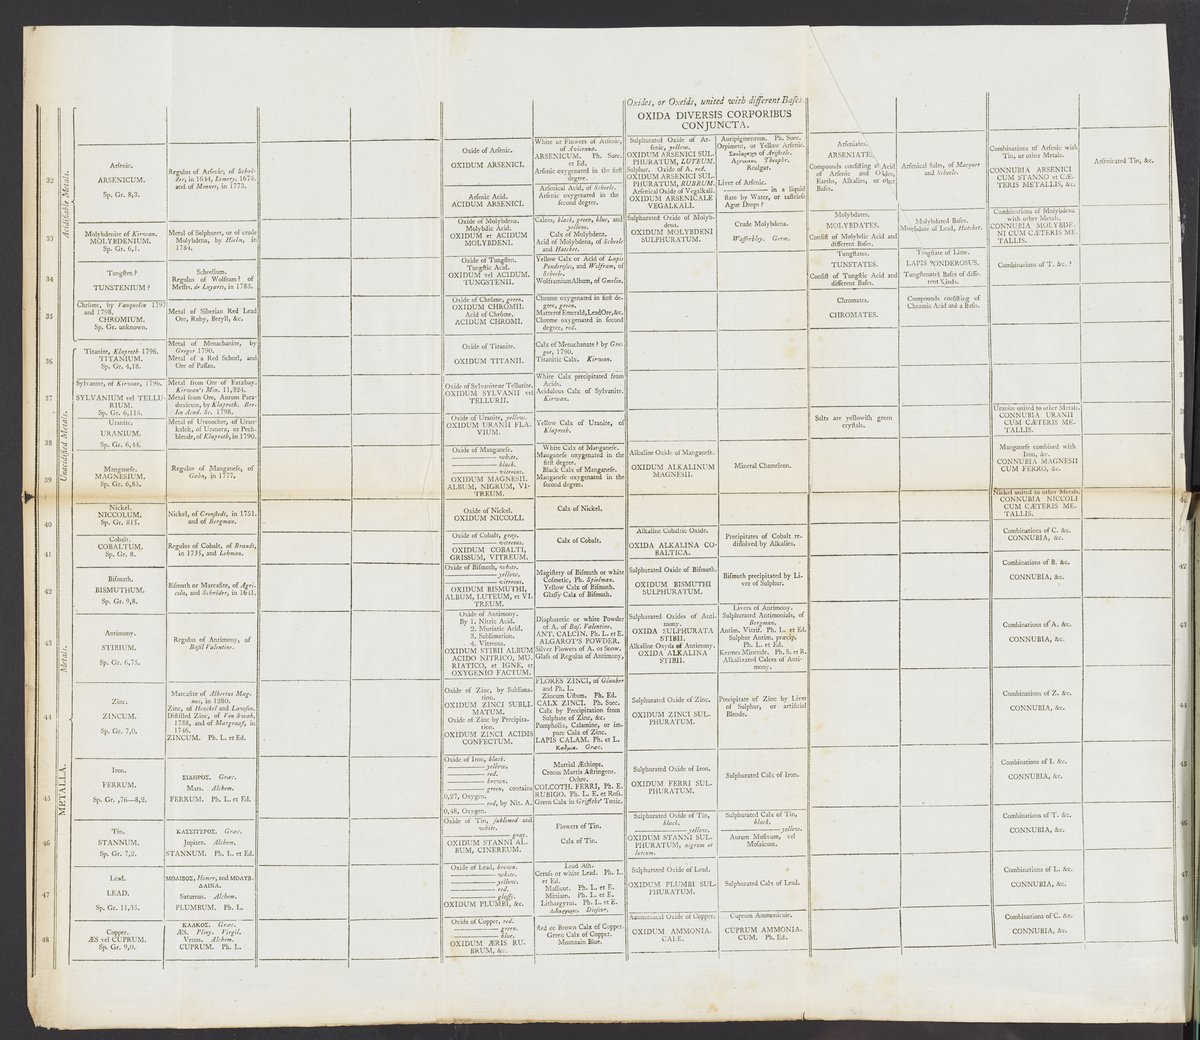 Oxides, or Oxeids, united with different Bases.
OXIDA DIVERSIS CORPORIBUS
CONJUNCTA.
Acidifiable Metals.
32
Arsenic.
ARSENICUM.
Sp. Gr. 8,3.
Regulus of Arsenic, of Schröder, in 1644, Lemery, 1675.
and of Monnet, in 1773.
Oxide of Arsenic.
OXIDUM ARSENICI.
Arsenic Acid.
ACIDUM ARSENICI.
White or Flowers of Arsenic,
of Avicenna.
ARSENICUM. Ph. Suec.
et Ed.
Arsenic oxygenated in the first
degree.
Arsenical Acid, of Scheele.
Arsenic oxygenated in the
second degree.
Sulphurated Oxide of Arsenic, yellow.
OXIDUM ARSENICI SULPHURATUM, LUTEUM.
Sulphur. Oxide of A. red.
OXIDUM ARSENICI SULPHURATUM, RUBRUM.
Arsenical Oxide of Vegalkali.
OXIDUM ARSENICALE
VEGALKALI.
Auripigmentum. Ph. Suec.
Orpiment, or Yellow Arsenic.
Realgar.
Liver of Arsenic.
in a liquid
state by Water, or tasteless
Ague Drops?
Arseniates.
ARSENIATES.
Compounds consisting of Acid
of Arsenic and Oxides,
Earths, Alkalies, or other
Bases.
Arsenical Salts, of Macquer
and Scheele.
Combinations of Arsenic with
Tin, or other Metals.
CONNUBIA ARSENICI
CUM STANNO et CÆTERIS METALLIS, &c.
Arsenicated Tin, &c.
33
Molybdenite of Kirwan.
MOLYBDENIUM.
Sp. Gr. 6,1.
Metal of Sulphuret, or of crude
Molybdena, by Hielm, in
1784.
Oxide of Molybdena.
Molybdic Acid.
OXIDUM et ACIDUM
MOLYBDENI.
Calces, black, green, blue, and
yellow.
Calx of Molybdena.
Acid of Molybdena, of Scheele
and Hatchet.
Sulphurated Oxide of Molybdena.
OXIDUM MOLYBDENI
SULPHURATUM.
Crude Molybdena.
Wasserbley. Germ.
Molybdates.
MOLYBDATES.
Consist of Molybdic Acid and
different Bases.
Molybdated Bases.
Molybdate of Lead, Hatchet.
Combinations of Molybdena
with other Metals.
CONNUBIA MOLYBDENI CUM CÆTERIS METALLIS.
34
Tungsten?
TUNSTENIUM?
Scheelium.
Regulus of Wolfram? of
Messrs. de Luyarts, in 1783.
Oxide of Tungsten.
Tungstic Acid.
OXIDUM vel ACIDUM
TUNGSTENII.
Yellow Calx or Acid of Lapis
Ponderosus, and Wolfram, of
Scheele.
Wolframium Album, of Gmelin.
Tungstates.
TUNSTATES.
Consist of Tungstic Acid and
different Bases.
Tungstate of Lime.
LAPIS PONDEROSUS.
Tungstenated Bases of different Kinds.
Combinations of T. &c.?
35
Chrôme, by Vauquelin 1797
and 1798.
CHROMIUM.
Sp. Gr. unknown.
Metal of Siberian Red Lead
Ore, Ruby, Beryll, &c.
Oxide of Chrôme, green.
OXIDUM CHROMII.
Acid of Chrôme.
ACIDUM CHROMI.
Chrome oxygenated in first degree, green.
Matter of Emerald, Lead Ore, &c.
Chrome oxygenated in second
degree, red.
Chromates.
CHROMATES.
Compounds consisting of
Chromic Acid and a Basis.
Unacidified Metals.
36
Titanite, Klaproth 1796.
TITANIUM.
Sp. Gr. 4,18.
Metal of Menachanite, by
Gregor 1790.
Metal of a Red Schorl, and
Ore of Passau.
Oxide of Titanite.
OXIDUM TITANII.
Calx of Menachanate? by Gregor, 1790.
Titanitic Calx. Kirwan.
37
Sylvanite, of Kirwan, 1796.
SYLVANIUM vel TELLURIUM.
Sp. Gr. 6,115.
Metal from Ore of Fatzbay.
Kirwan's Min. 11,324.
Metal from Ore, Aurum Paradoxicum, by Klaproth. Berlin Acad. Sc. 1798.
Oxide of Sylvanite or Tellurite.
OXIDUM SYLVANII vel
TELLURII.
White Calx precipitated from
Acids.
Acidulous Calx of Sylvanite.
Kirwan.
38
Uranite.
URANIUM.
Sp. Gr. 6,44.
Metal of Uranochre, of Urankalck, of Uranerz, or Pechblende, of Klaproth, in 1790.
Oxide of Uranite, yellow.
OXIDUM URANII FLAVIUM.
Yellow Calx of Uranite, of
Klaproth.
Salts are yellowish green
crystals.
Uranite united to other Metals.
CONNUBIA URANII
CUM CÆTERIS METALLIS.
39
Manganese.
MAGNESIUM.
Sp. Gr. 6,85.
Regulus of Manganese, of
Gahn, in 1777.
Oxide of Manganese.
white.
black.
vitreous.
OXIDUM MAGNESII.
ALBUM, NIGRUM, VITREUM.
White Calx of Manganese.
Manganese oxygenated in the
first degree.
Black Calx of Manganese.
Manganese oxygenated in the
second degree.
Alkaline Oxide of Manganese.
OXIDUM ALKALINUM
MAGNESII.
Mineral Chameleon.
Manganese combined with
Iron, &c.
CONNUBIA MAGNESII
CUM FERRO, &c.
Metals.
40
Nickel.
NICCOLUM.
Sp. Gr. 815.
Nickel, of Cronstedt, in 1751.
and of Bergman.
Oxide of Nickel.
OXIDUM NICCOLI.
Calx of Nickel.
Nickel united to other Metals.
CONNUBIA NICCOLI
CUM CÆTERIS METALLIS.
41
Cobalt.
COBALTUM.
Sp. Gr. 8.
Regulus of Cobalt, of Brandt,
in 1735, and Lehman.
Oxide of Cobalt, gray.
vitreous.
OXIDUM COBALTI,
GRISSUM, VITREUM.
Calx of Cobalt.
Alkaline Cobaltic Oxide.
OXIDA ALKALINA COBALTICA.
Precipitates of Cobalt redissolved by Alkalies.
Combinations of C. &c.
CONNUBIA, &c.
42
Bismuth.
BISMUTHUM.
Sp. Gr. 9,8.
Bismuth or Marcasite, of Agricola, and Schröder, in 1641.
Oxide of Bismuth, white.
yellow.
vitreous.
OXIDUM BISMUTHI,
ALBUM, LUTEUM, et VITREUM.
Magistery of Bismuth or white
Cosmetic, Ph. Spielman.
Yellow Calx of Bismuth.
Glassy Calx of Bismuth.
Sulphurated Oxide of Bismuth.
OXIDUM BISMUTHI
SULPHURATUM.
Bismuth precipitated by Liver of Sulphur.
Combinations of B. &c.
CONNUBIA, &c.
43
Antimony.
STIBIUM.
Sp. Gr. 6,75.
Regulus of Antimony, of
Basil Valentine.
Oxide of Antimony.
By 1. Nitric Acid.
2. Muriatic Acid.
3. Sublimation.
4. Vitreous.
OXIDUM STIBII ALBUM
ACIDO NITRICO, MURIATICO, et IGNE, et
OXYGENIO FACTUM.
Diaphoretic or white Powder
of A. of Bas. Valentine.
ANT. CALCIN. Ph. L. et E.
ALGAROT'S POWDER.
Silver Flowers of A. or Snow.
Glass of Regulus of Antimony.
Sulphurated Oxides of Antimony.
OXIDA SULPHURATA
STIBII.
Alkaline Oxyds of Antimony.
OXIDA ALKALINA
STIBII.
Livers of Antimony.
Sulphurated Antimonials, of
Bergman.
Antim. Vitrif. Ph. L. et Ed.
Sulphur Antim. præcip.
Ph. L. et Ed.
Kermes Minerale. Ph. S. et R.
Alkalizated Calces of Antimony.
Combinations of A. &c.
CONNUBIA, &c.
44
Zinc.
ZINCUM.
Sp. Gr. 7,0.
Marcasite of Albertus Magnus, in 1280.
Zinc, of Henckel and Lawson.
Distilled Zinc, of Von Swab,
1738, and of Margraaf, in
1746.
ZINCUM. Ph. L. et Ed.
Oxide of Zinc, by Sublimation.
OXIDUM ZINCI SUBLIMATUM.
Oxide of Zinc by Precipitation.
OXIDUM ZINCI ACIDIS
CONFECTUM.
FLORES ZINCI, of Glauber
and Ph. L.
Zincum Ustum. Ph. Ed.
CALX ZINCI. Ph. Suec.
Calx by Precipitation from
Sulphate of Zinc, &c.
Pompholix, Calamine, or impure Calx of Zinc.
LAPIS CALAM. Ph. et L.
Sulphurated Oxide of Zinc.
OXIDUM ZINCI SULPHURATUM.
Precipitate of Zinc by Liver
of Sulphur, or artificial
Blende.
Combinations of Z. &c.
CONNUBIA, &c.
METALLA.
45
Iron.
FERRUM.
Sp. Gr. ,76—8,2.
ΣΙΔΗΡΟΣ. Græc.
Mars. Alchem.
FERRUM. Ph. L. et Ed.
Oxide of Iron, black.
yellow.
red.
brown.
green, contains
0,27, Oxygen.
red, by Nit. A.
0,48, Oxygen.
Martial Æthiops.
Crocus Martis Astringens.
Ochre.
COLCOTH. FERRI, Ph. E.
RUBIGO. Ph. L. E. et Ross.
Green Calx in Griffiths' Tonic.
Sulphurated Oxide of Iron.
OXIDUM FERRI SULPHURATUM.
Sulphurated Calx of Iron.
Combinations of I. &c.
CONNUBIA, &c.
46
Tin.
STANNUM.
Sp. Gr. 7,2.
ΚΑΣΣΙΤΕΡΟΣ. Græc.
Jupiter. Alchem.
STANNUM. Ph. L. et Ed.
Oxide of Tin, sublimed and
white.
gray.
OXIDUM STANNI ALBUM, CINEREUM.
Flowers of Tin.
Calx of Tin.
Sulphurated Oxide of Tin,
black.
yellow.
OXIDUM STANNI SULPHURATUM, nigrum et
luteum.
Sulphurated Calx of Tin,
black.
yellow.
Aurum Mosivum, vel
Mosaicum.
Combinations of T. &c.
CONNUBIA, &c.
47
Lead.
LEAD.
Sp. Gr. 11,35.
ΜΟΛΙΒΟΣ, Homer, and ΜΟΛΥΒΔΑΙΝΑ.
Saturnus. Alchem.
PLUMBUM. Ph. L.
Oxide of Lead, brown.
white.
yellow.
red.
glassy.
OXIDUM PLUMBI, &c.
Lead Ash.
Ceruss or white Lead. Ph. L.
et Ed.
Massicot. Ph. L. et E.
Minium. Ph. L. et E.
Lithargyrus. Ph. L. et E.
Sulphurated Oxide of Lead.
OXIDUM PLUMBI SULPHURATUM.
Sulphurated Calx of Lead.
Combinations of L. &c.
CONNUBIA, &c.
48
Copper.
ÆS vel CUPRUM.
Sp. Gr. 9,0.
ΚΛΑΚΟΣ. Græc.
ÆS. Pliny. Virgil.
Venus. Alchem.
CUPRUM. Ph. L.
Oxide of Copper, red.
green.
blue.
OXIDUM ÆRIS RUBRUM, &c.
Red or Brown Calx of Copper.
Green Calx of Copper.
Mountain Blue.
Ammoniacal Oxide of Copper.
OXIDUM AMMONIACALE.
Cuprum Ammonicale.
CUPRUM AMMONIACUM. Ph. Ed.
Combinations of C. &c.
CONNUBIA, &c.